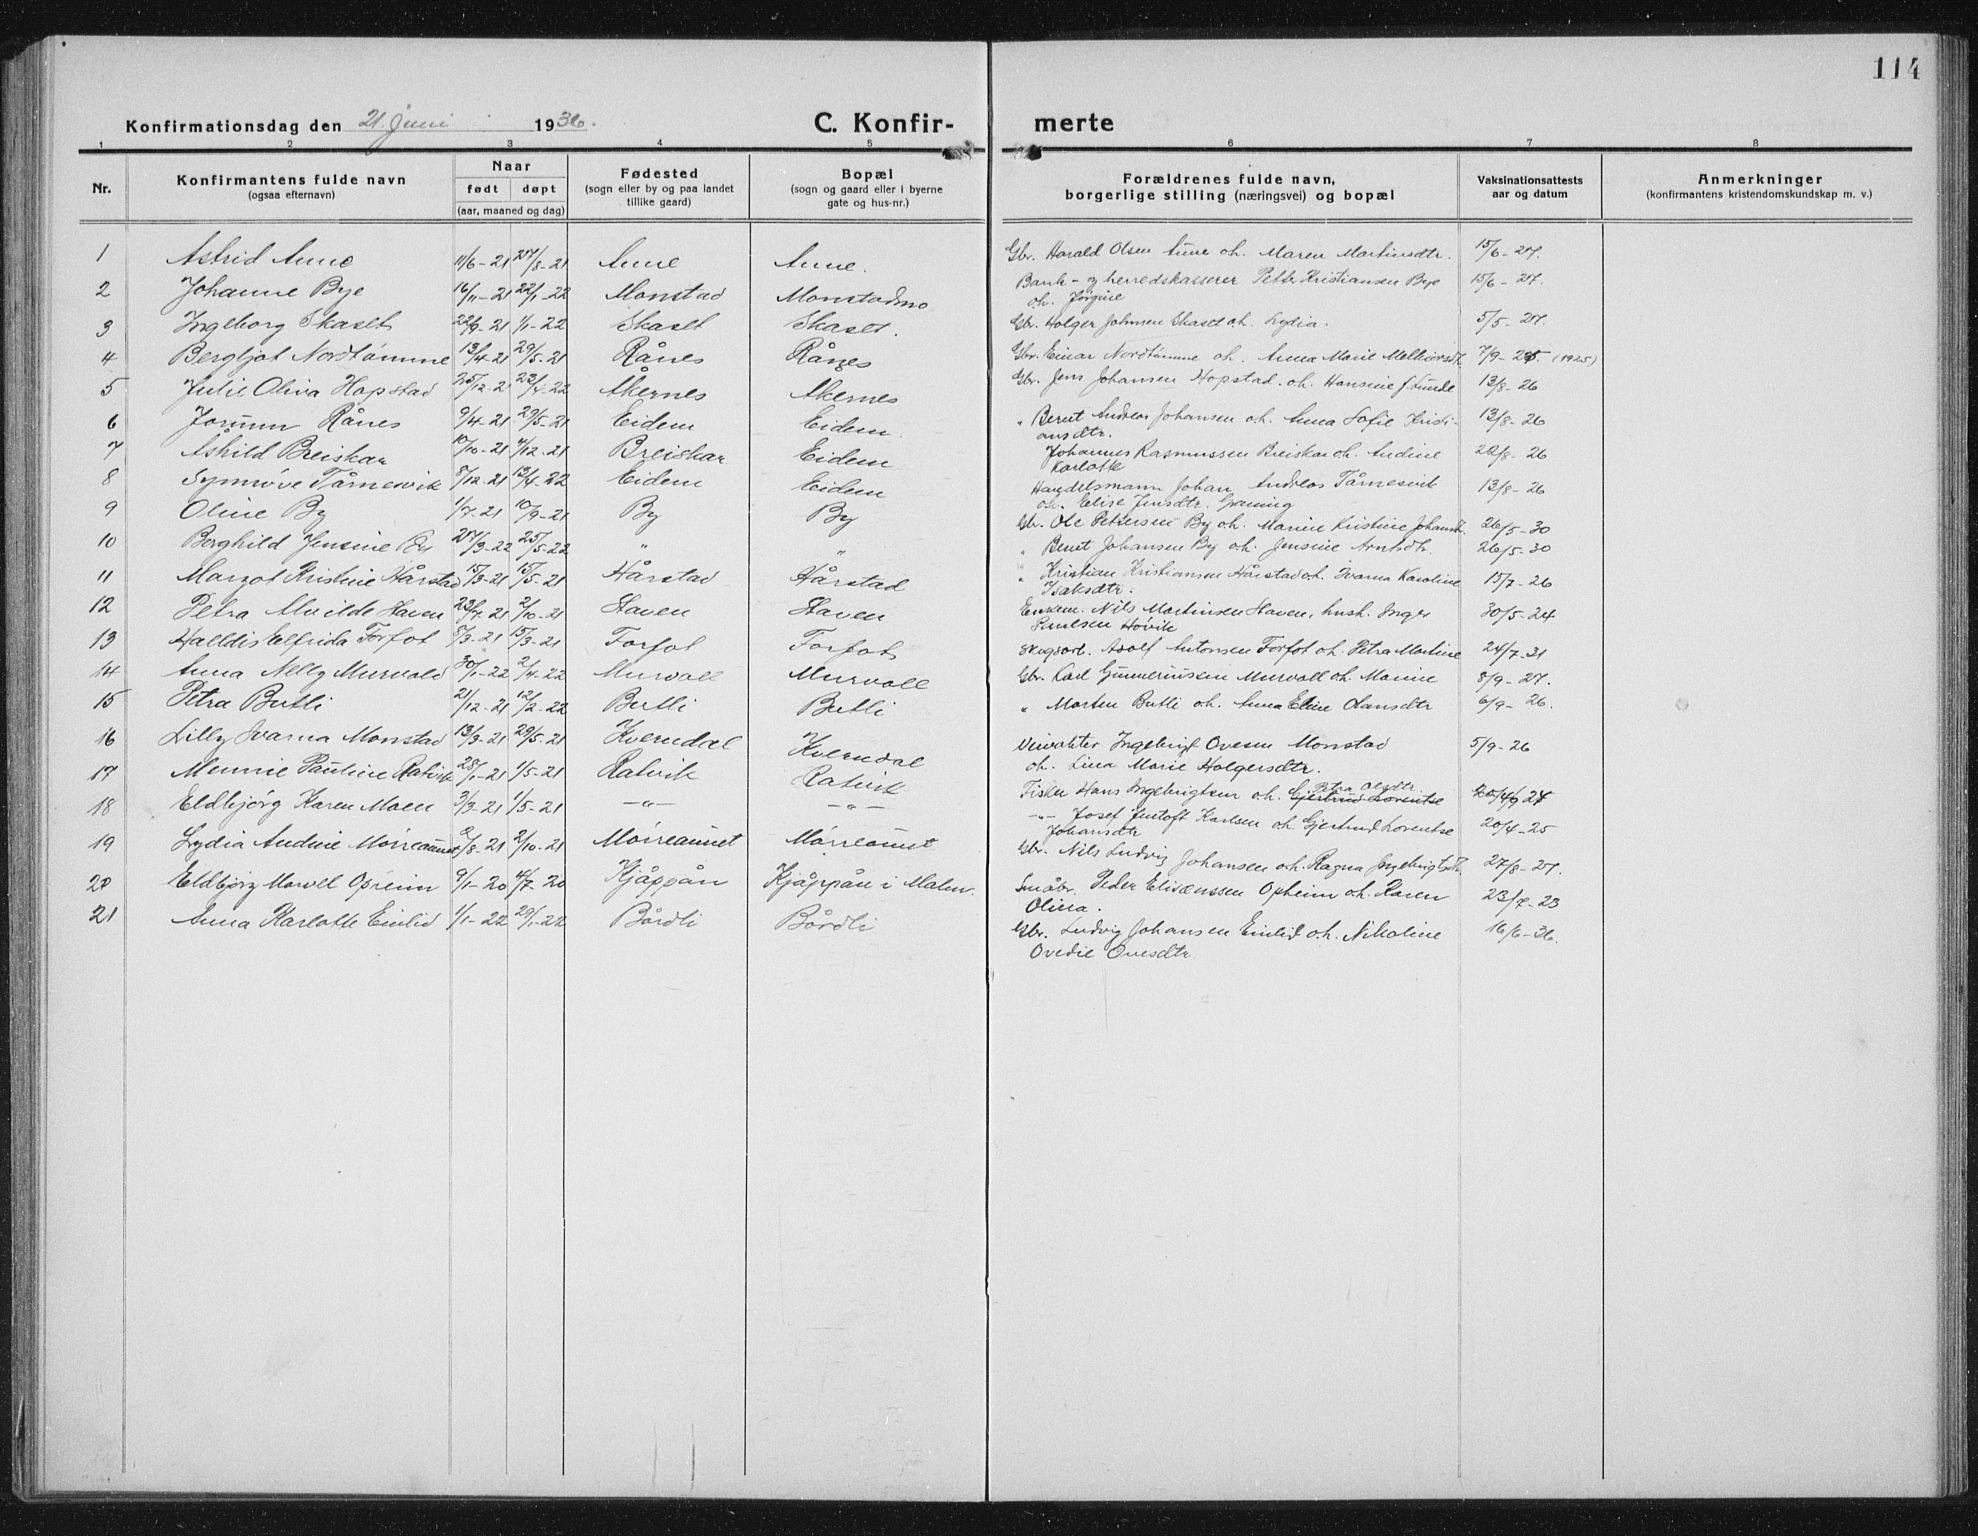 114
Konfirmationsdag den 21. juni 1936.
C. Konfir-merte
1 2 3 4 5 6 7 8
Nr. | Konfirmantens fulde navn (ogsaa efternavn) | Naar født døpt (aar, maaned og dag) | Fødested (sogn eller by og paa landet tillike gaard) | Bopæl (sogn og gaard eller i byerne gate og hus-nr.) | Forældrenes fulde navn, borgerlige stilling (næringsvei) og bopæl | Vaksinationsattests aar og datum | Anmerkninger (konfirmantens kristendomskundskap m. v.)
1 Astrid Aune 11/6-21 27/8-21 Aune Aune. Gbr. Harald Olsen Aune oh. Maren Martinsdtr. 15/6-27.
2 Johanne Bye 16/11-21 22/1-22 Monstad Monstadmo Bank- og herredskasserer Petter Kristiansen Bye 15/6-27.
oh. Jørgine
3 Ingeborg Skaset 22/9-21 1/1-22 Skaset Skaset. Gbr. Holger Johnsen Skaset oh. Lydia. 5/5-27.
4 Bergljot Nordtømme 13/4-21 29/5-21 Rånes Rånes Gbr. Einar Nordtømme oh. Anna Marie Melkiorsdt. 7/9-25 (1925)
5 Julie Oliva Hopstad 25/12-21 23/4-22 Åkernes Akernes Gbr. Jens Johansen Hopstad oh. Hansine f. Lunde 13/8-26
6 Jorunn Rånes 9/4-21 29/5-21 Eidem Eidem " Bernt Andreas Johansen oh. Anna Sofie Kristi- 13/8-26
ansdtr.
7 Åshild Breiskar 10/10-21 4/12-21 Breiskar Eidem Johannes Rasmussen Breiskar oh. Andine 28/8-26
Karlotte
8 Synnøve Tårnesvik 8/12-21 13/4-22 Eidem Eidem Handelsmann Johan Andreas Tårnesvik 13/8-26
oh. Elise Jensdtr. Grønning
9 Oline By 1/7-21 10/9-21 By By Gbr. Ole Pettersen By oh. Marine Kristine Johansdt. 26/5-30
10 Borghild Jensine By 27/3-22 25/5-22 " " " Bernt Johansen By oh. Jensine Arntsdtr. 26/5-30
11 Margot Kristine Hårstad 15/3-21 15/5-21 Hårstad Hårstad " Kristian Kristiansen Hårstad oh. Ivarna Karoline 15/7-26
Isaksdtr.
12 Petra Alvilde Haven 23/7-21 2/10-21 Haven Haven Enkem. Nils Martinsen Haven, hush. Inger 30/5-24
Paulsen Høvik
13 Halldis Elfrida Forfot 8/3-21 15/3-21 Forfot Forfot Skogsarb. Adolf Antonsen Forfot oh. Petra Martine 24/7-31
14 Anna Nelly Murvold 30/1-22 2/4-22 Murvoll Murvoll Gbr. Karl Gunneriussen Murvoll oh. Marine 8/9-27.
15 Petra Butli 21/12-21 12/2-22 Butli Butli " Morten Butli oh. Anna Eline Hansdtr 6/9-26.
16 Lilly Ivarna Monstad 13/3-21 29/5-21 Kverndal Kverndal Veivokter Ingebrigt Ovesen Monstad 5/9-26
oh. Lina Marie Holgersdtr.
17 Mennie Pauline Ratvik 28/1-21 1/5-21 Ratvik Ratvik Fisker Hans Ingebrigtsen oh. Petra Olsdtr.
18 Eldbjørg Karen Moen 3/3-21 1/5-21 —"— —"— —"— Josef Justoft Karlsen oh. Gjertrud Lorentse 20/4-25
Johansdtr
19 Lydia Andine Mørreaunet 2/8-21 2/10-21 Mørreaunet Mørreaunet Gbr. Nils Ludvig Johansen oh. Ragna Ingebrigtsdt. 27/8-27.
20 Eldbjørg Marvel Opheim 9/1-20 4/7-20 Kjåppån Kjåppån i Malm. Småbr. Peder Elisæussen Opheim oh. Karen 23/7-23
Olina.
21 Anna Karlotte Einlid 1/1-22 29/1-22 Bårdli Bårdli Gbr. Ludvig Johansen Einlid oh. Nikoline 16/6-36.
Ovedie Ovesdtr